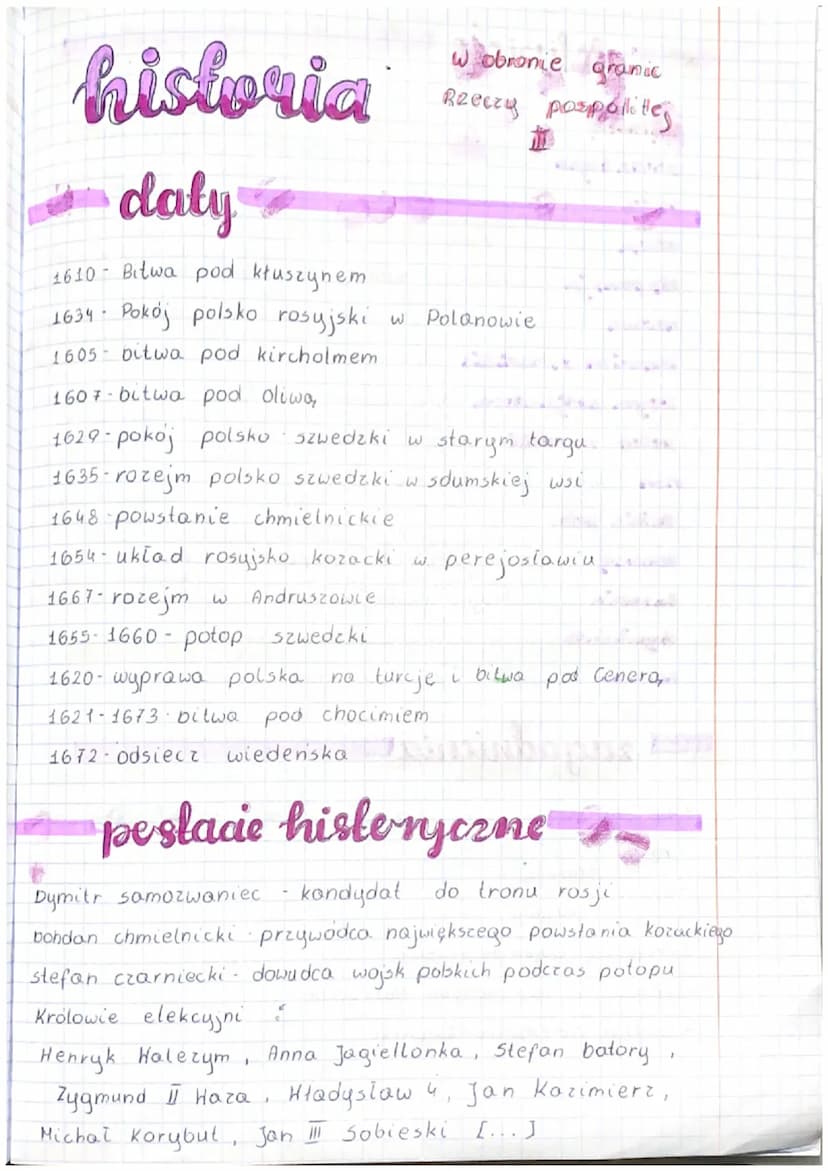 historia
W obronie granic
Rzeczy pospolitej
III
daty
1610 - Bitwa pod kłuszynem
1634 - Pokój polsko rosyjski w Polanowie
1605 - bitwa pod kircholmem
1607 - bitwa pod oliwą
1629 - pokój polsko szwedzki w starym targu
1635 - rozejm polsko szwedzki w sdumskiej wsi
1648 - powstanie chmielnickie
1654 - układ rosyjsko kozacki w perejosławiu
1667 - rozejm w Andruszowie
1655 - 1660 - potop szwedzki
1620 - wyprawa polska na turcję i bitwa pod Cenerą
1621 - 1673 - bitwa pod chocimiem
1672 - odsiecz wiedeńska
postacie historyczne
Dymitr samozwaniec - kandydat do tronu rosji
bohdan chmielnicki - przywódca największego powstania kozackiego
stefan czarniecki - dowudca wojsk polskich podczas potopu
Królowie elekcyjni :
Henryk Walezym , Anna Jagiellonka , Stefan batory ,
Zygmund II Waza , Władysław 4 , Jan Kazimierz ,
Michał Korybut , Jan III Sobieski [...]